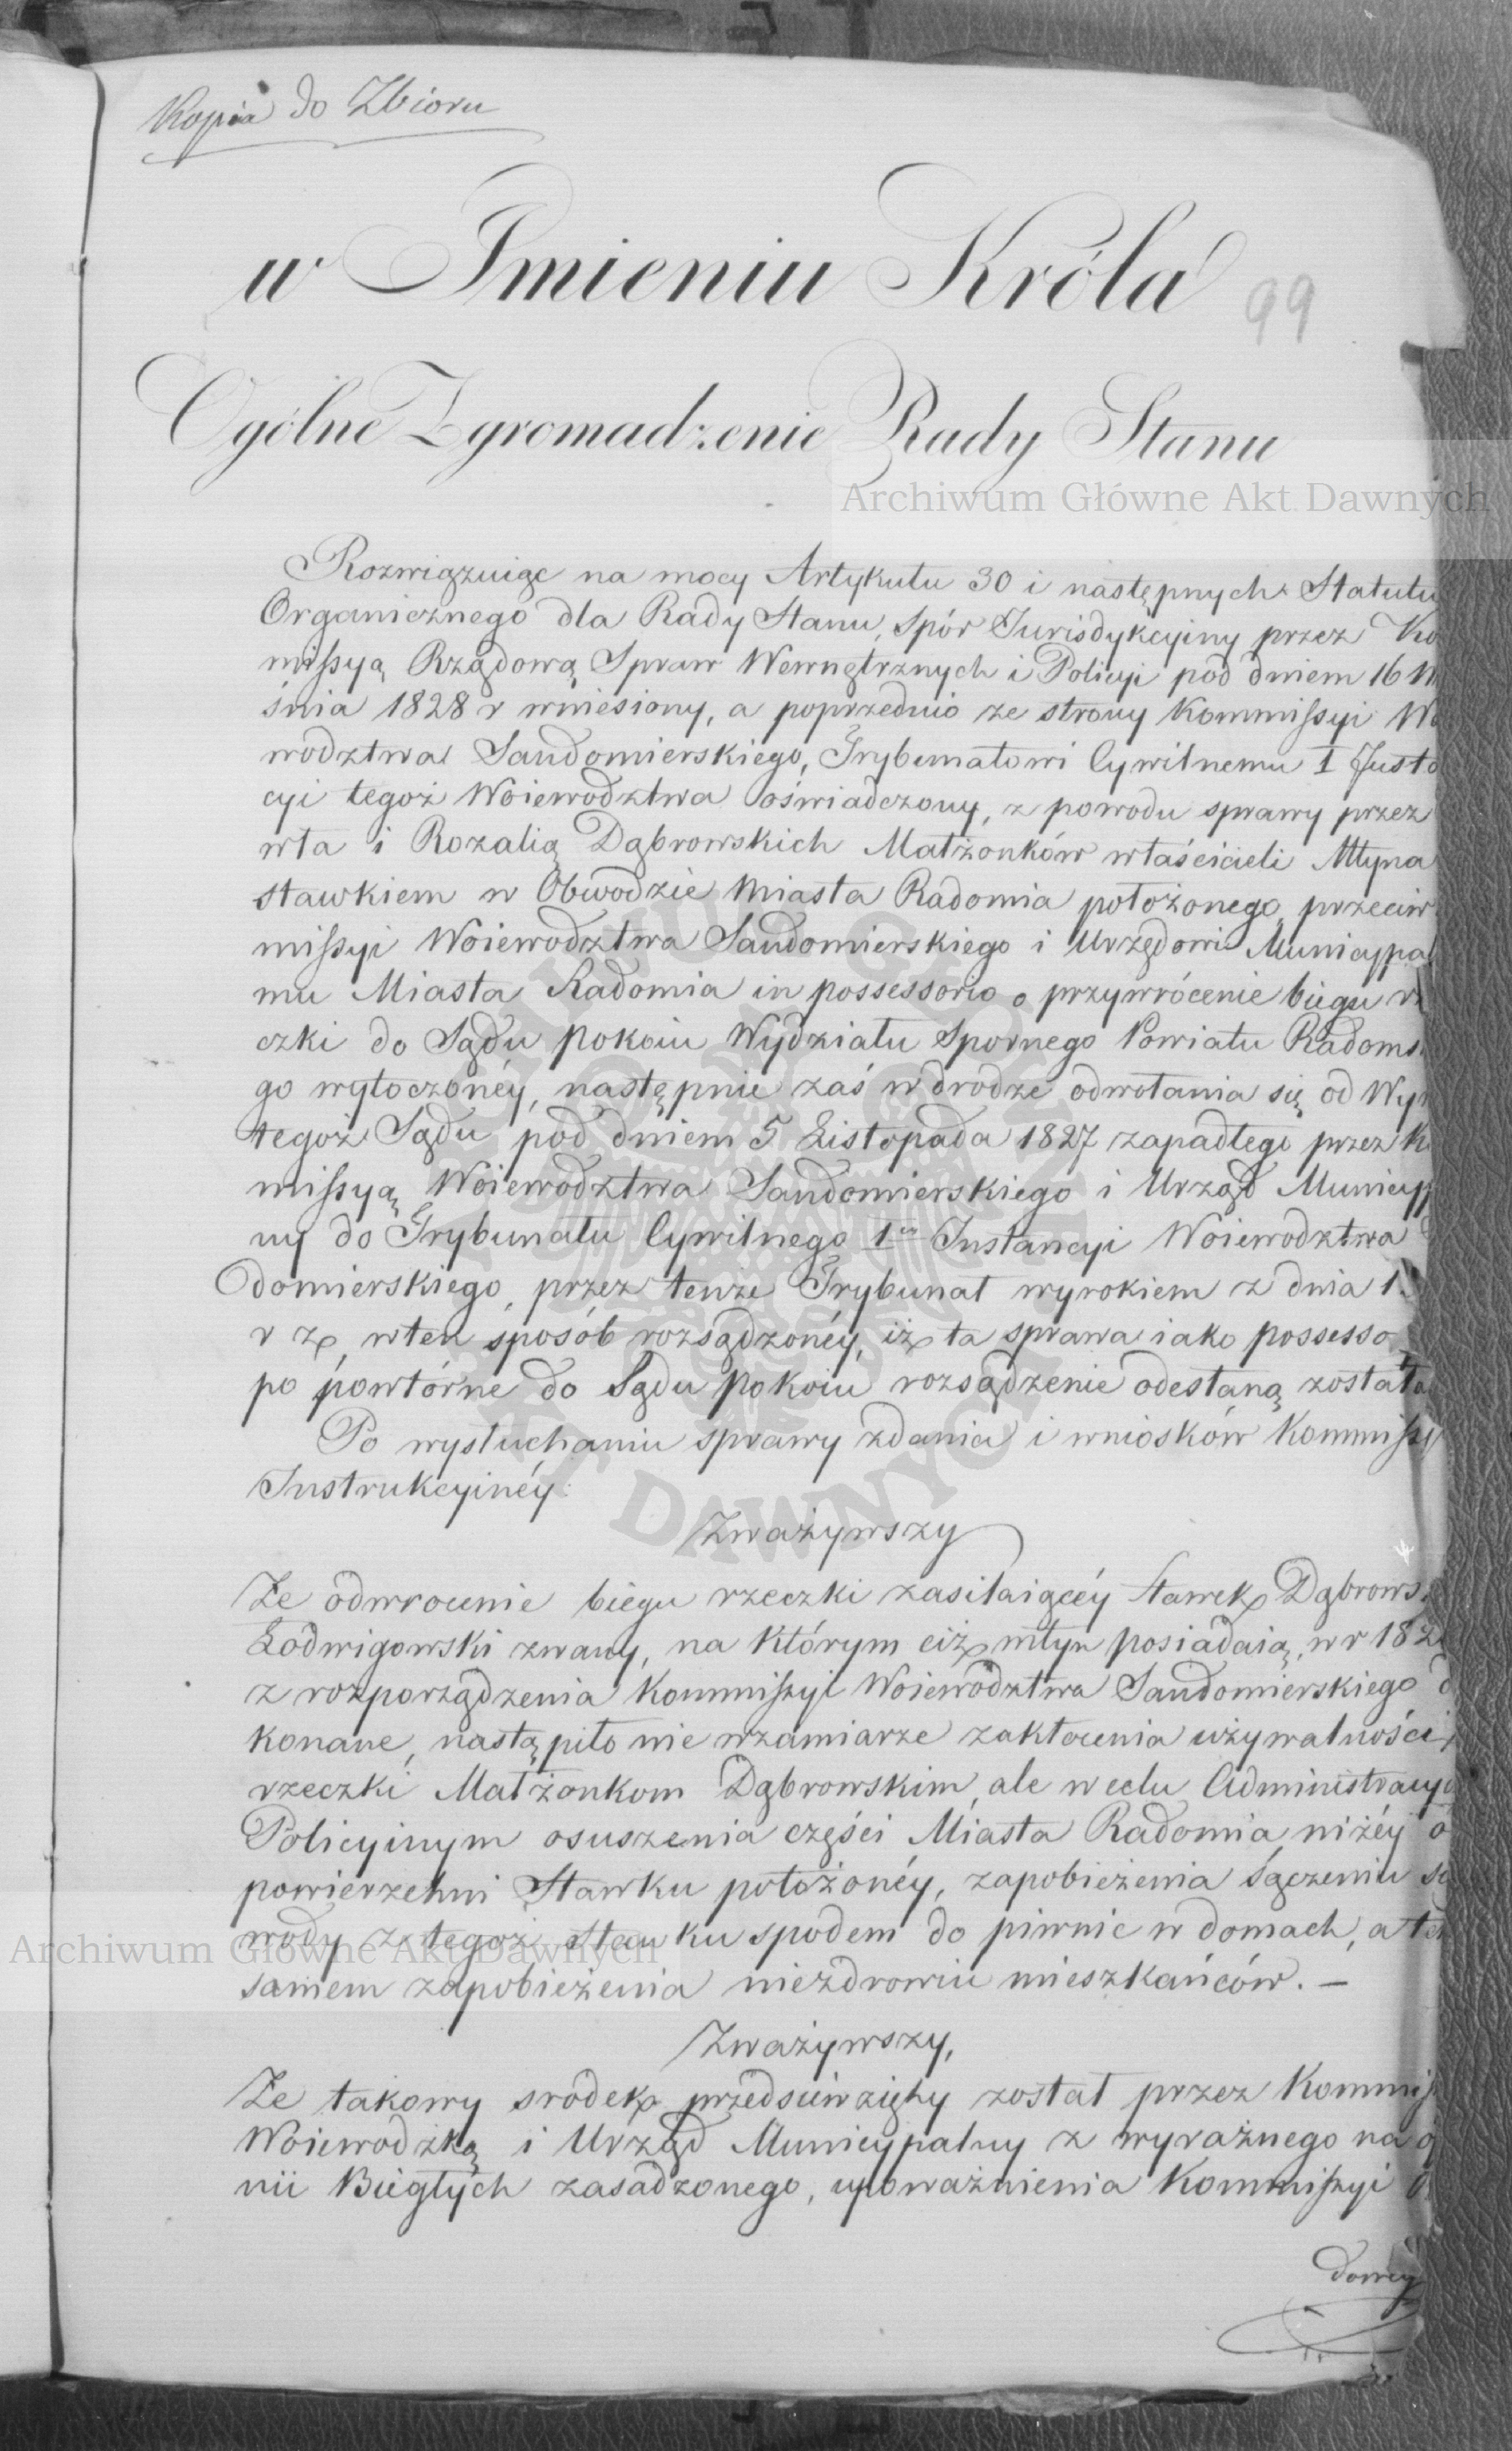 Kopia do Zbioru
w Imieniu Króla
99
Ogólne Zgromadzenie Rady Stanu
Archiwum Główne Akt Dawnych
Rozwiązuiąc na mocy Artykułu 30 i następnych Statutu
Organicznego dla Rady Stanu, Spór Jurisdykcyiny przez Ko
missyą Rządową Spraw Wewnętrznych i Policyi pod dniem 16 W
śnia 1828 r wniesiony, a poprzednio ze strony Kommissyi Wo
wodztwa Sandomierskiego, Trybunałowi Cywilnemu I Insta
cyi tegoż Woiewodztwa oświadczony, z powodu sprawy przez
wła i Rozalią Dąbrowskich Małżonków właścicieli Młyna
stawkiem w Obwodzie Miasta Radomia położonego, przeciw
missyi Woiewodztwa Sandomierskiego i Urzędowi Municypal
mu Miasta Radomia in possessorio o przywrócenie biegu rz
czki do Sądu pokoiu Wydziału Spornego Powiatu Radoms
go wytoczonéy, następnie zaś w drodze odwołania się od Wyr
tegoż Sądu pod dniem 5 Listopada 1827 zapadłego przez K
missyą Woiewodztwa Sandomierskiego i Urząd Municyp
ny do Trybunału Cywilnego 1ey Instancyi Woiewodztwa
domierskiego, przez tenże Trybunał wyrokiem z dnia 1
r z, w ten sposób rozsądzonéy, iż ta sprawa iako possesso
po powtórne do Sądu pokoiu rozsądzenie odesłaną została
Po wysłuchaniu sprawy zdania i wniosków Kommissy
Instrukcyinéy:
Zważywszy
Że odwrocenie biegu rzeczki zasilaiącéy Stawek Dąbrows
Lodwigowski zwany, na którym ciż młyn posiadaią, w r 182
z rozporządzenia Kommissyi Woiewodztwa Sandomierskiego d
konane, nastąpiło nie w zamiarze zakłocenia używalności
rzeczki Małżonkom Dąbrowskim, ale w celu Administracy
Policyinym osuszenia części Miasta Radomia, niżéy o
powierzchni Stawku położonéy, zapobieżenia sączeniu se
wody z tegoż stawku spodem do piwnic w domach, a tem
Archiwum Główne Akt Dawnych
samem zapobieżenia niezdrowiu mieszkańców. —
Zważywszy,
Że takowy srodek przedsiewzięty został przez Kommis
Woiewodzką i Urząd Municypalny z wyraźnego na o
nii Biegłych zasadzonego, upoważnienia Kommissyi
dowéy